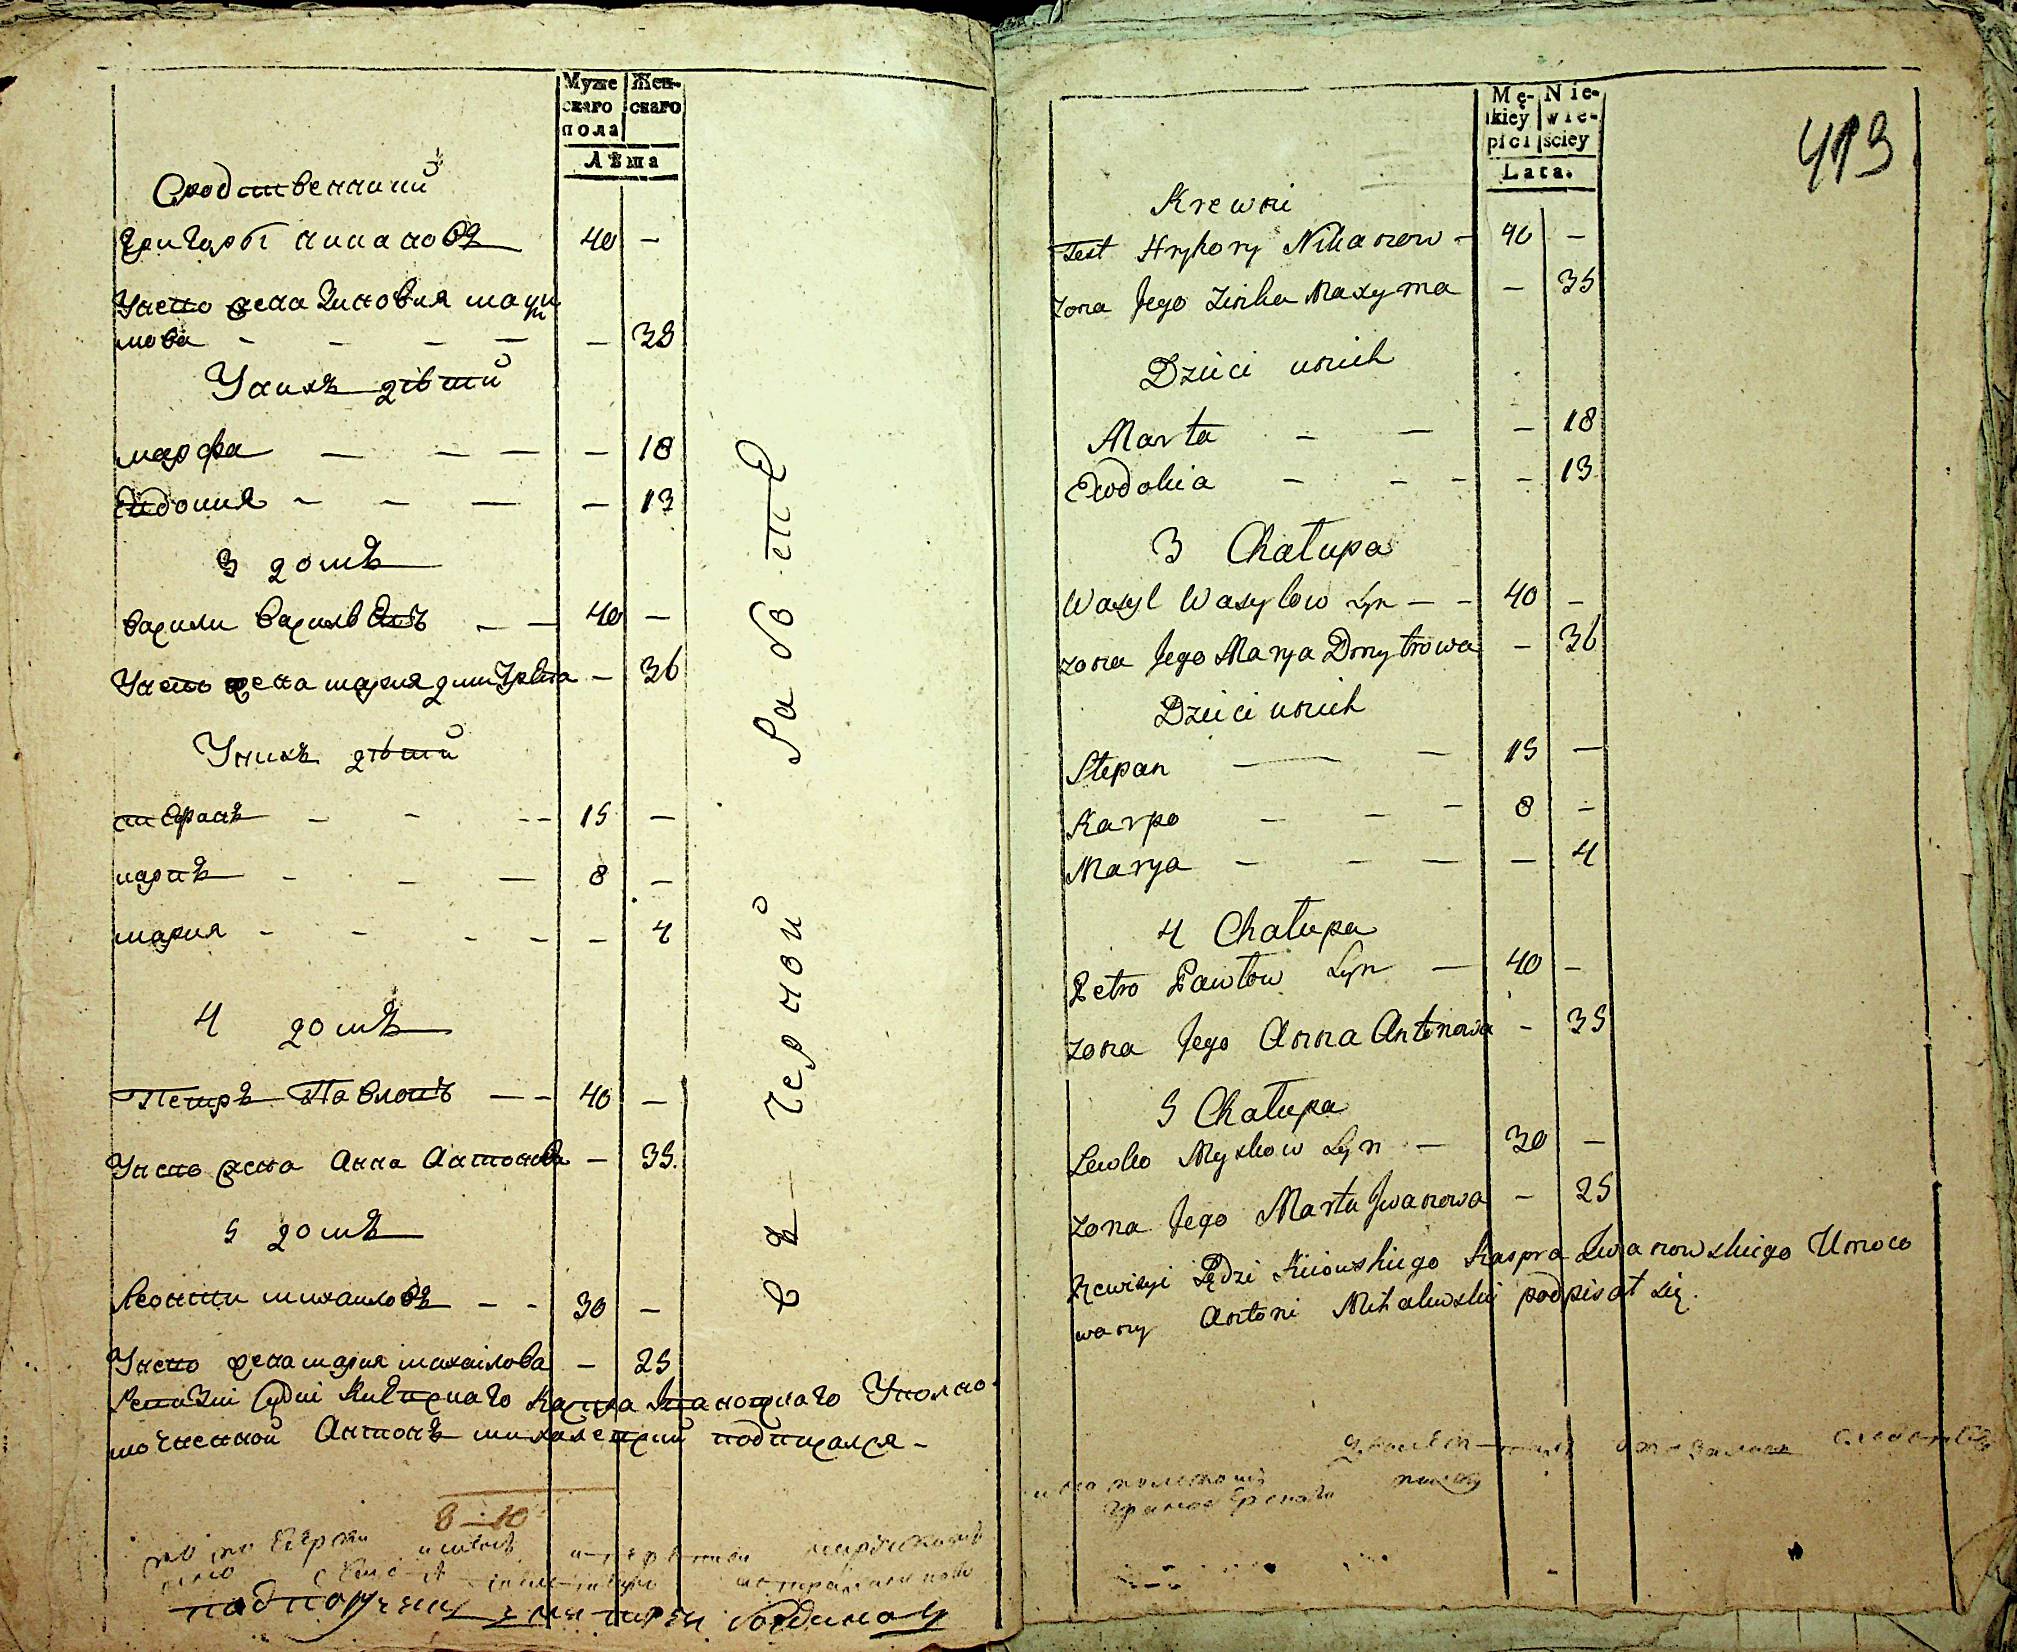 Муже
скаго
пола
Жен-
скаго
Лѣта
Сродственники
Григоры Никановъ 40 —
У него жена Зиновия Макси
мова — — — — — 38
У нихъ дѣти
Марфа — — — — 18
Евдокия — — — — 13
3 домъ
Василии Васильевъ — — 40 —
У него жена Мария Дмитрева — 36
У нихъ дѣти
Стефанъ — — — 15 —
Карпъ — — — 8 —
Мария — — — — — 4
4 домъ
Петръ Павловъ — — 40 —
У него жена Анна Антонова — 35.
5 домъ
Леонти Михаиловъ — — 30 —
У него жена Мария Михаилова — 25
Ревизиі Судиі Киевскаго Каспра Ивановскаго Уполно-
моченной Антонъ Михалевский подписался —
Съ Черной работе
8 — 10
Mę-
kiey
płci
Nie-
wie-
ściey
Lata.
413
Krewni
Test Hryhory Nikanow — 40 —
Zona Jego Zinka Maxyma — 35
Dzieci u nich
Marta — — — 18
Ewdokia — — — — 13
3 Chałupa
Wasyl Wasylow Syn — — 40 —
Zona Jego Marya Dmytrowa — 36
Dzieci u nich
Stepan — — 15 —
Karpo — — — 8 —
Marya — — — — 4
4 Chałupa
Petro Pawłow Syn — 40 —
Zona Jego Anna Antonowa — 35
5 Chałupa
Lewko Myskow Syn — 30 —
Zona Jego Marta Iwanowa — 25
Rewizyi Sędzi Kiiowskiego Kaspra Iwanowskiego Umoco
wany Antoni Mihalewski podpisał się.